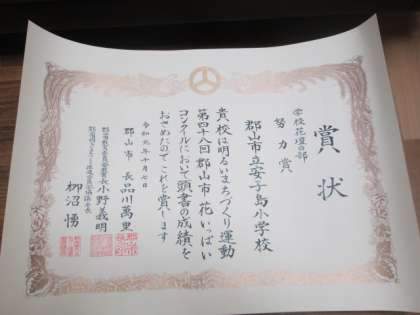 賞状
学校花壇の部
努力賞
郡山市立安子島小学校
貴校は明るいまちづくり運動
第四十八回郡山市花いっぱい
コンクールにおいて頭書の成績を
おさめたのでこれを賞します
令和元年十月七日
郡山市長 品川萬里
郡山市教育委員会教育長 小野義明
柳沼